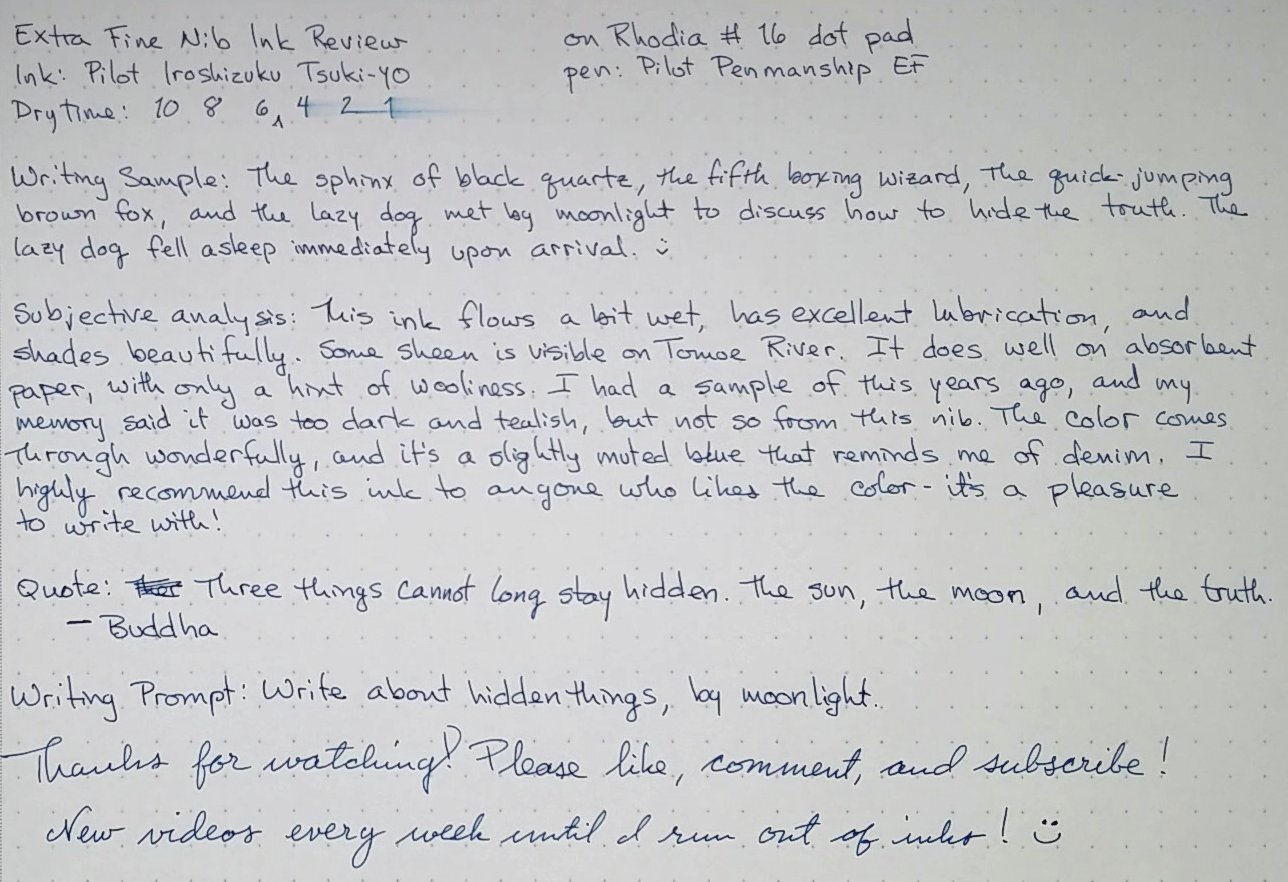 Extra Fine Nib Ink Review on Rhodia # 16 dot pad
Ink: Pilot Iroshizuku Tsuki-yo pen: Pilot Penmanship EF
Dry time: 10 8 6 ʌ 4 2 1
Writing Sample: The sphinx of black quartz, the fifth boxing wizard, the quick-jumping
brown fox, and the lazy dog met by moonlight to discuss how to hide the truth. The
lazy dog fell asleep immediately upon arrival. :)
Subjective analysis: This ink flows a bit wet, has excellent lubrication, and
shades beautifully. Some sheen is visible on Tomoe River. It does well on absorbent
paper, with only a hint of wooliness. I had a sample of this years ago, and my
memory said it was too dark and tealish, but not so from this nib. The color comes
through wonderfully, and it's a slightly muted blue that reminds me of denim. I
highly recommend this ink to anyone who likes the color - it's a pleasure
to write with!
Quote: Three things cannot long stay hidden. The sun, the moon, and the truth.
- Buddha
Writing Prompt: Write about hidden things, by moonlight.
Thanks for watching! Please like, comment, and subscribe!
New videos every week until I run out of inks! :)